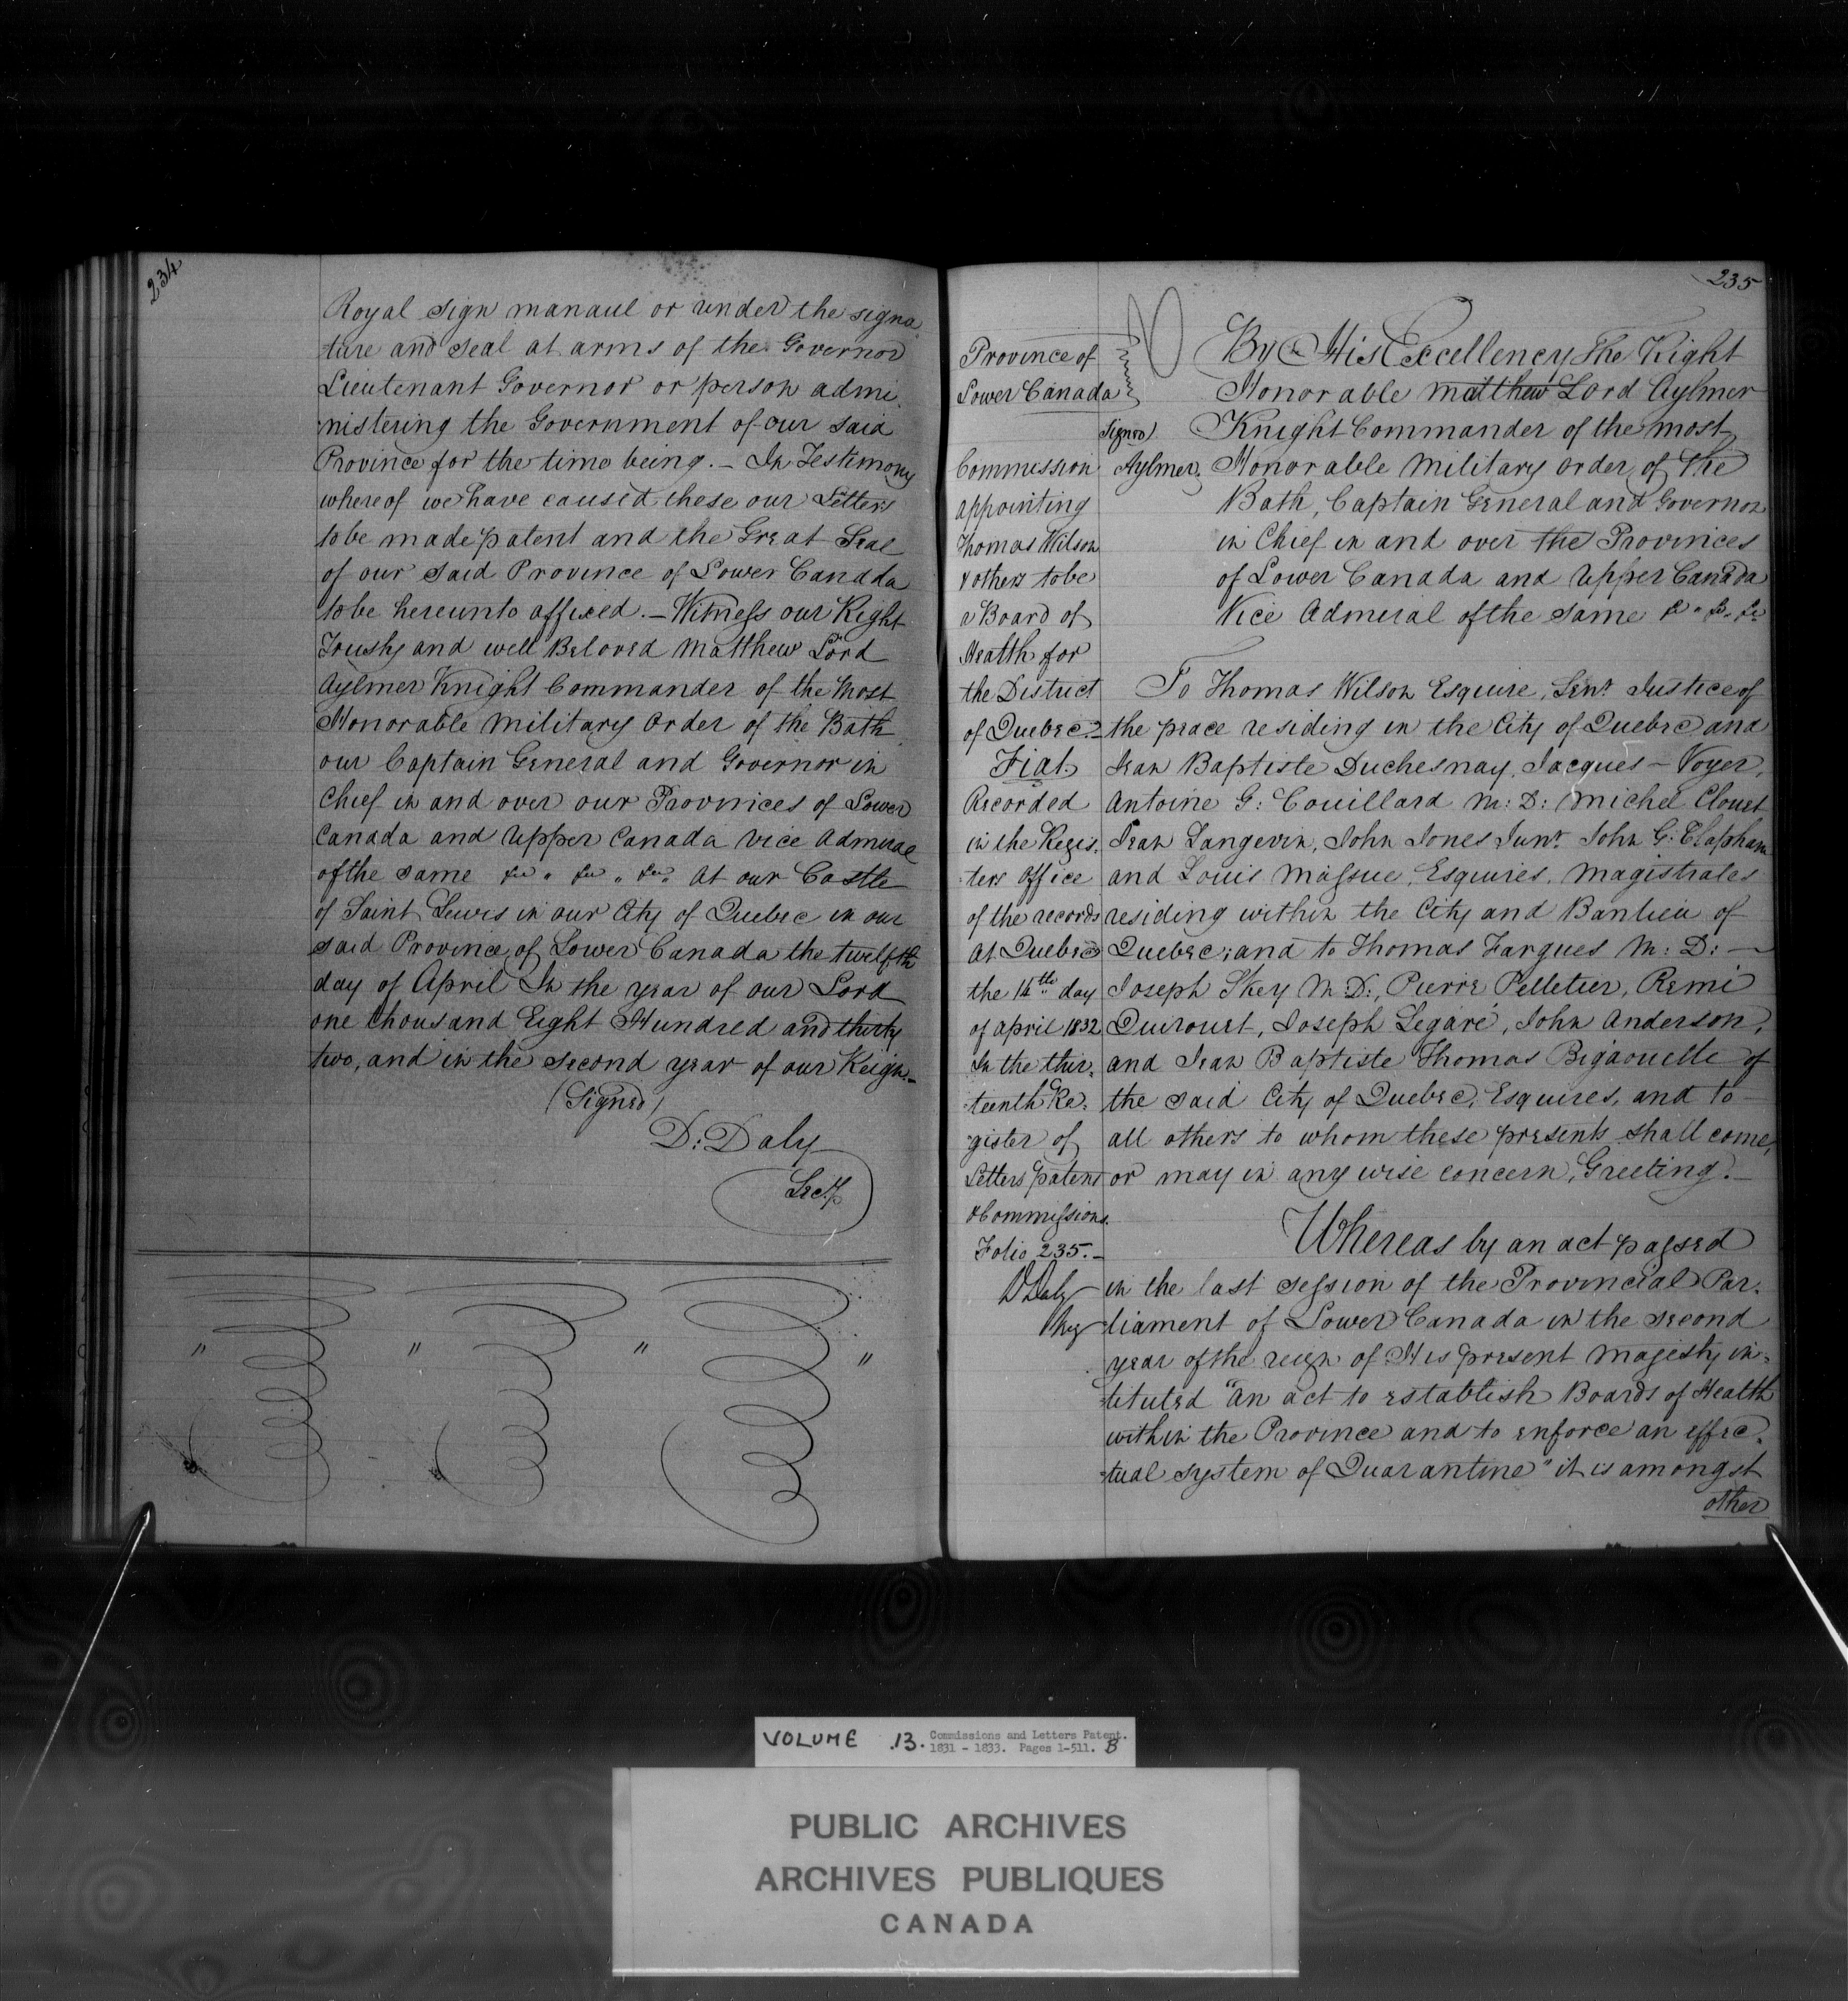 234
Royal sign manaul or under the signa
ture and seal at arms of the Governor
Lieutenant Governor or person admi
nistering the Government of our said
Province for the time being. – In Testimony
whereof we have caused these our Letters
to be made patent and the Great Seal
of our said Province of Lower Canada
to be hereunto affixed. – Witness our Right
Trusty and well Beloved Matthew Lord
Aylmer Knight Commander of the Most
Honorable Military Order of the Bath
our Captain General and Governor in
Chief in and over our Provinces of Lower
Canada and Upper Canada Vice Admiral
of the same &c " &c " &c " At our Castle
of Saint Lewis in our City of Quebec in our
said Province of Lower Canada the twelfth
day of April In the year of our Lord
one thousand Eight Hundred and thirty
two, and in the second year of our Reign. –
(Signed)
D: Daly
Secy
" " " "
235
Province of
Lower Canada
Signed
Aylmer.
Commission
appointing
Thomas Wilson
& others to be
a Board of
Health for
the District
of Quebec. –
Fiat.
Recorded
in the Regis.
ters Office
of the records
at Quebec
the 14th day
of April 1832
In the thir:
teenth Re:
gister of
Letters patent
& Commissions.
Folio 235. –
D Daly
Reg
By His Excellency The Right
Honorable Matthew Lord Aylmer
Knight Commander of the most
Honorable Military order of the
Bath, Captain General and Governor
in Chief in and over the Provinces
of Lower Canada and Upper Canada
Vice Admiral of the same &c " &c " &c
To Thomas Wilson Esquire, Senr Justice of
the peace residing in the City of Quebec and
Jean Baptiste Duchesnay, Jacques – Voyer,
Antoine G: Couillard M: D: Michel Clouet
Jean Langevin, John Jones Junr John G: Clapham
and Louis Massue, Esquires, Magistrates
residing within the City and Banlieu of
Quebec; and to Thomas Fargues M: D: –
Joseph Skey M: D:, Pierre Pelletier, Remi
Quirouet, Joseph Legaré, John Anderson,
and Jean Baptiste Thomas Bigaouette of
the said City of Quebec, Esquires, and to
all others to whom these presents shall come,
or may in any wise concern, Greeting. –
Whereas by an act passed
in the last session of the Provincial Par.
liament of Lower Canada in the second
year of the reign of His present Majesty in:
tituted "An act to establish Boards of Health
within the Province and to enforce an effec.
tual system of Quarantine" it is amongst
other
VOLUME 13. Commissions and Letters Patent.
1831 - 1833. Pages 1-511. B
PUBLIC ARCHIVES
ARCHIVES PUBLIQUES
CANADA